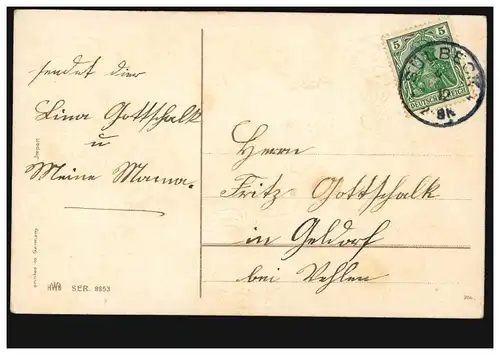 sendet dir
Lina Gottschalk
u
Meine Mama.
Herrn
Fritz Gottschalk
in Geldorf
bei Vehlen
5 5
DEUTSCHES REICH
SÜLBECK
8N
printed in Germany
HWB SER. 8853